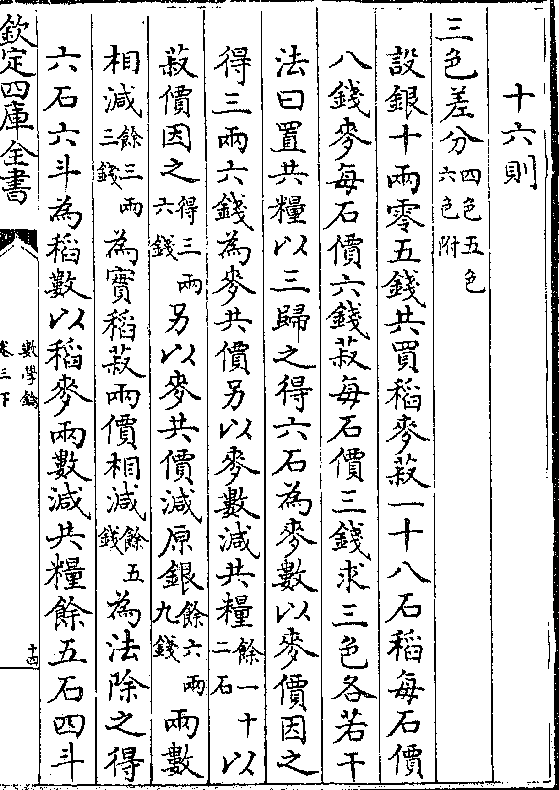 十六則
三色差分四色五色六色附
設銀十兩零五錢共買稻麥菽一十八石稻每石價
八錢麥每石價六錢菽每石價三錢求三色各若干
法曰置共糧以三歸之得六石為麥數以麥價因之
得三兩六錢為麥共價另以麥數減共糧餘一十二石以
菽價因之得三兩六錢另以麥共價減原銀餘六兩九錢兩數
相減餘三兩三錢為實稻菽兩價相減餘五錢為法除之得
六石六斗為稻數以稻麥兩數減共糧餘五石四斗
欽定四庫全書
數學鑰
卷三下
十四